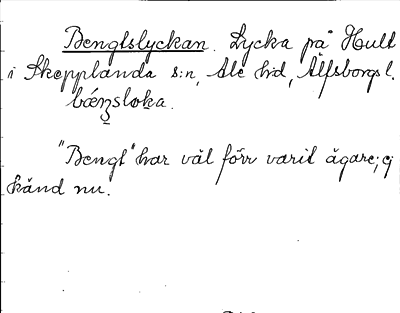 Bengtslyckan. Lycka på Hult
i Skepplanda s:n, Ale hd, Älfsborgs l.
"Bengt" har väl förr varit ägare; ej
känd nu.